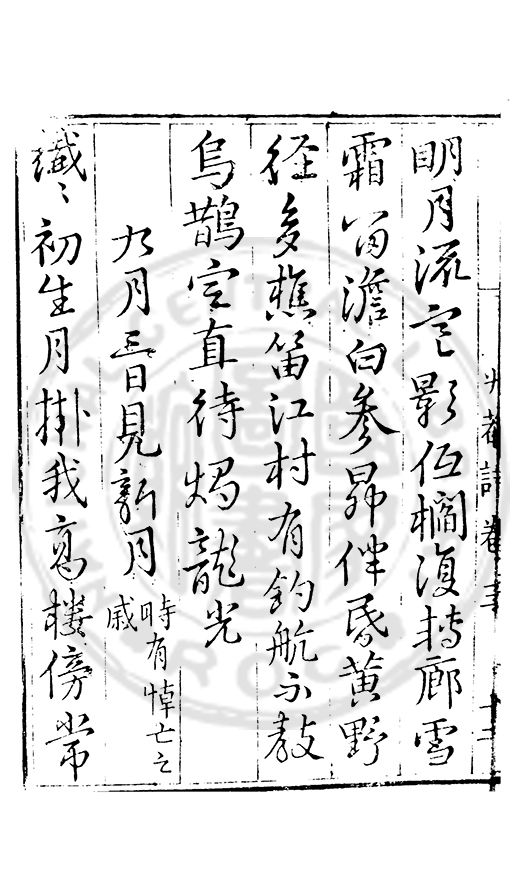 明月流空影低欄復轉廊雪
霜留澹白參昴伴昏黃野
徑多樵笛江村有釣航不教
烏鵲定直待燭龍光
九月三日見新月 時有悼亡之
戚
纖〻初生月掛我高樓傍常
菴詩卷三
十二